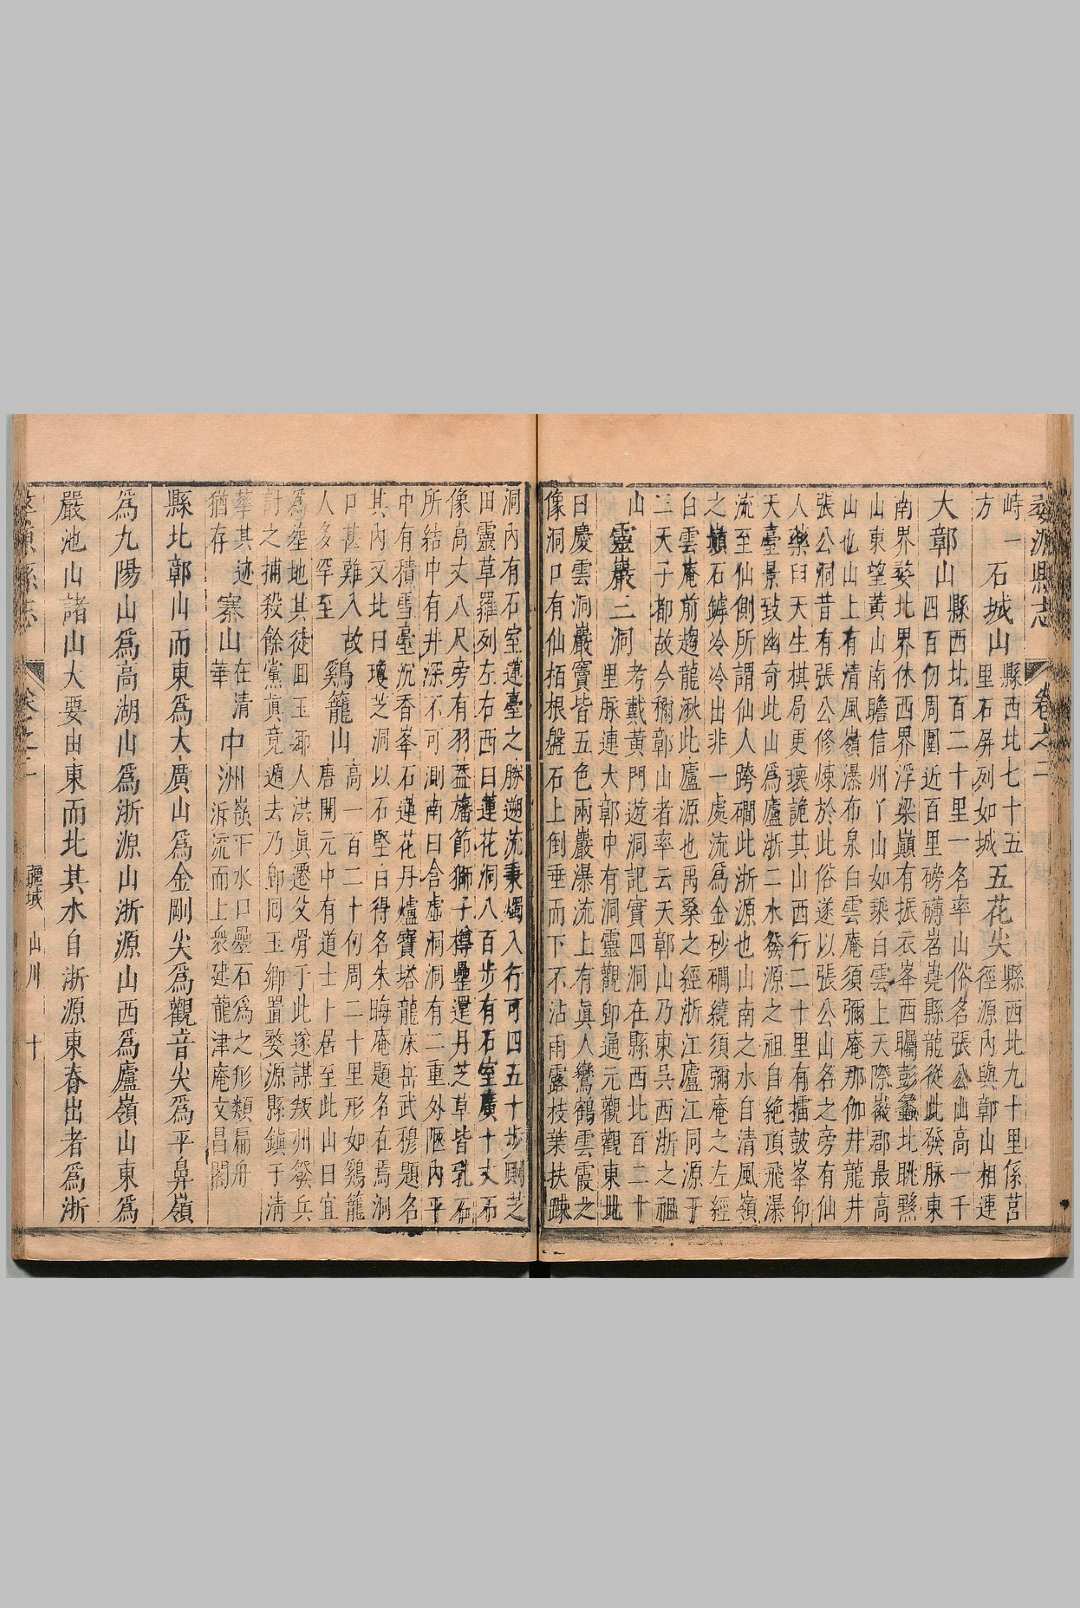 婺源縣志 卷之二
峙一 石城山 縣西北七十五 五花尖 縣西北九十里係莒
方 里石屏列如城 徑源內與鄣山相連
大鄣山 縣西北百二十里一名率山俗名張公山高一千
四百仞周圍近百里磅礴岧嶤縣龍從此發脉東
南界婺北界休西界浮梁巔有振衣峯西矚彭蠡北眺黟
山東望黃山南瞻信州丫山如乘白雲上天際嶶郡最高
山也山上有清風嶺瀑布泉白雲庵須彌庵那伽井龍井
張公洞昔有張公修煉於此俗遂以張公山名之旁有仙
人藥臼天生棋局更瓌詭其山西行二十里有擂鼓峯仰
天臺景致幽奇此山爲廬浙二水發源之祖自絶頂飛瀑
流至仙側所謂仙人跨磵此浙源也山南之水自清風嶺
之巔石罅冷冷出非一處流爲金砂磵繞須彌庵之左經
白雲庵前趨龍湫此廬源也禹桑之經浙江廬江同源于
三天子都故今稱鄣山者率云天鄣山乃東吳西浙之祖
山 靈巖二洞 考戴黃門遊洞記實四洞在縣西北百二十
里脉連大鄣中有洞靈觀卽通元觀觀東北
曰慶雲洞巖竇皆五色兩巖瀑流上有眞人鸞鶴雲霞之
像洞口有仙栢根盤石上倒垂而下不沾雨露枝葉扶踈
洞內有石室蓮臺之勝遡流秉燭入行可四五十步則芝
田靈草羅列左右西曰蓮花洞八百步有石室廣十丈石
像高丈八尺旁有羽蓋旛節獅子樽罍還丹芝草皆乳石
所結中有井深不可測南曰含虛洞洞有二重外隘內平
中有積雪臺沉香峯石蓮花丹爐寶塔龍床岳武穆題名
其內又北曰瓊芝洞以石堅白得名朱晦庵題名在焉洞
口甚難入故 鷄籠山 高一百二十仞周二十里形如鷄籠
人多罕至 唐開元中有道士卜居至此山曰宜
爲墟地其徒田玉鄉人洪眞遷父骨于此遂謀叛州發兵
討之捕殺餘黨眞竟遁去乃卽囘玉鄉置婺源縣鎮于清
華其迹 寨山 在清 中洲 嶺下水口壘石爲之形類扁舟
猶存 華 泝流而上衆建龍津庵文昌閣
縣北鄣山而東爲大廣山爲金剛尖爲觀音尖爲平鼻嶺
爲九陽山爲高湖山爲浙源山浙源山西爲廬嶺山東爲
嚴池山諸山大要由東而北其水自浙源東春出者爲浙
婺源縣志 卷之二 疆域 山川 十